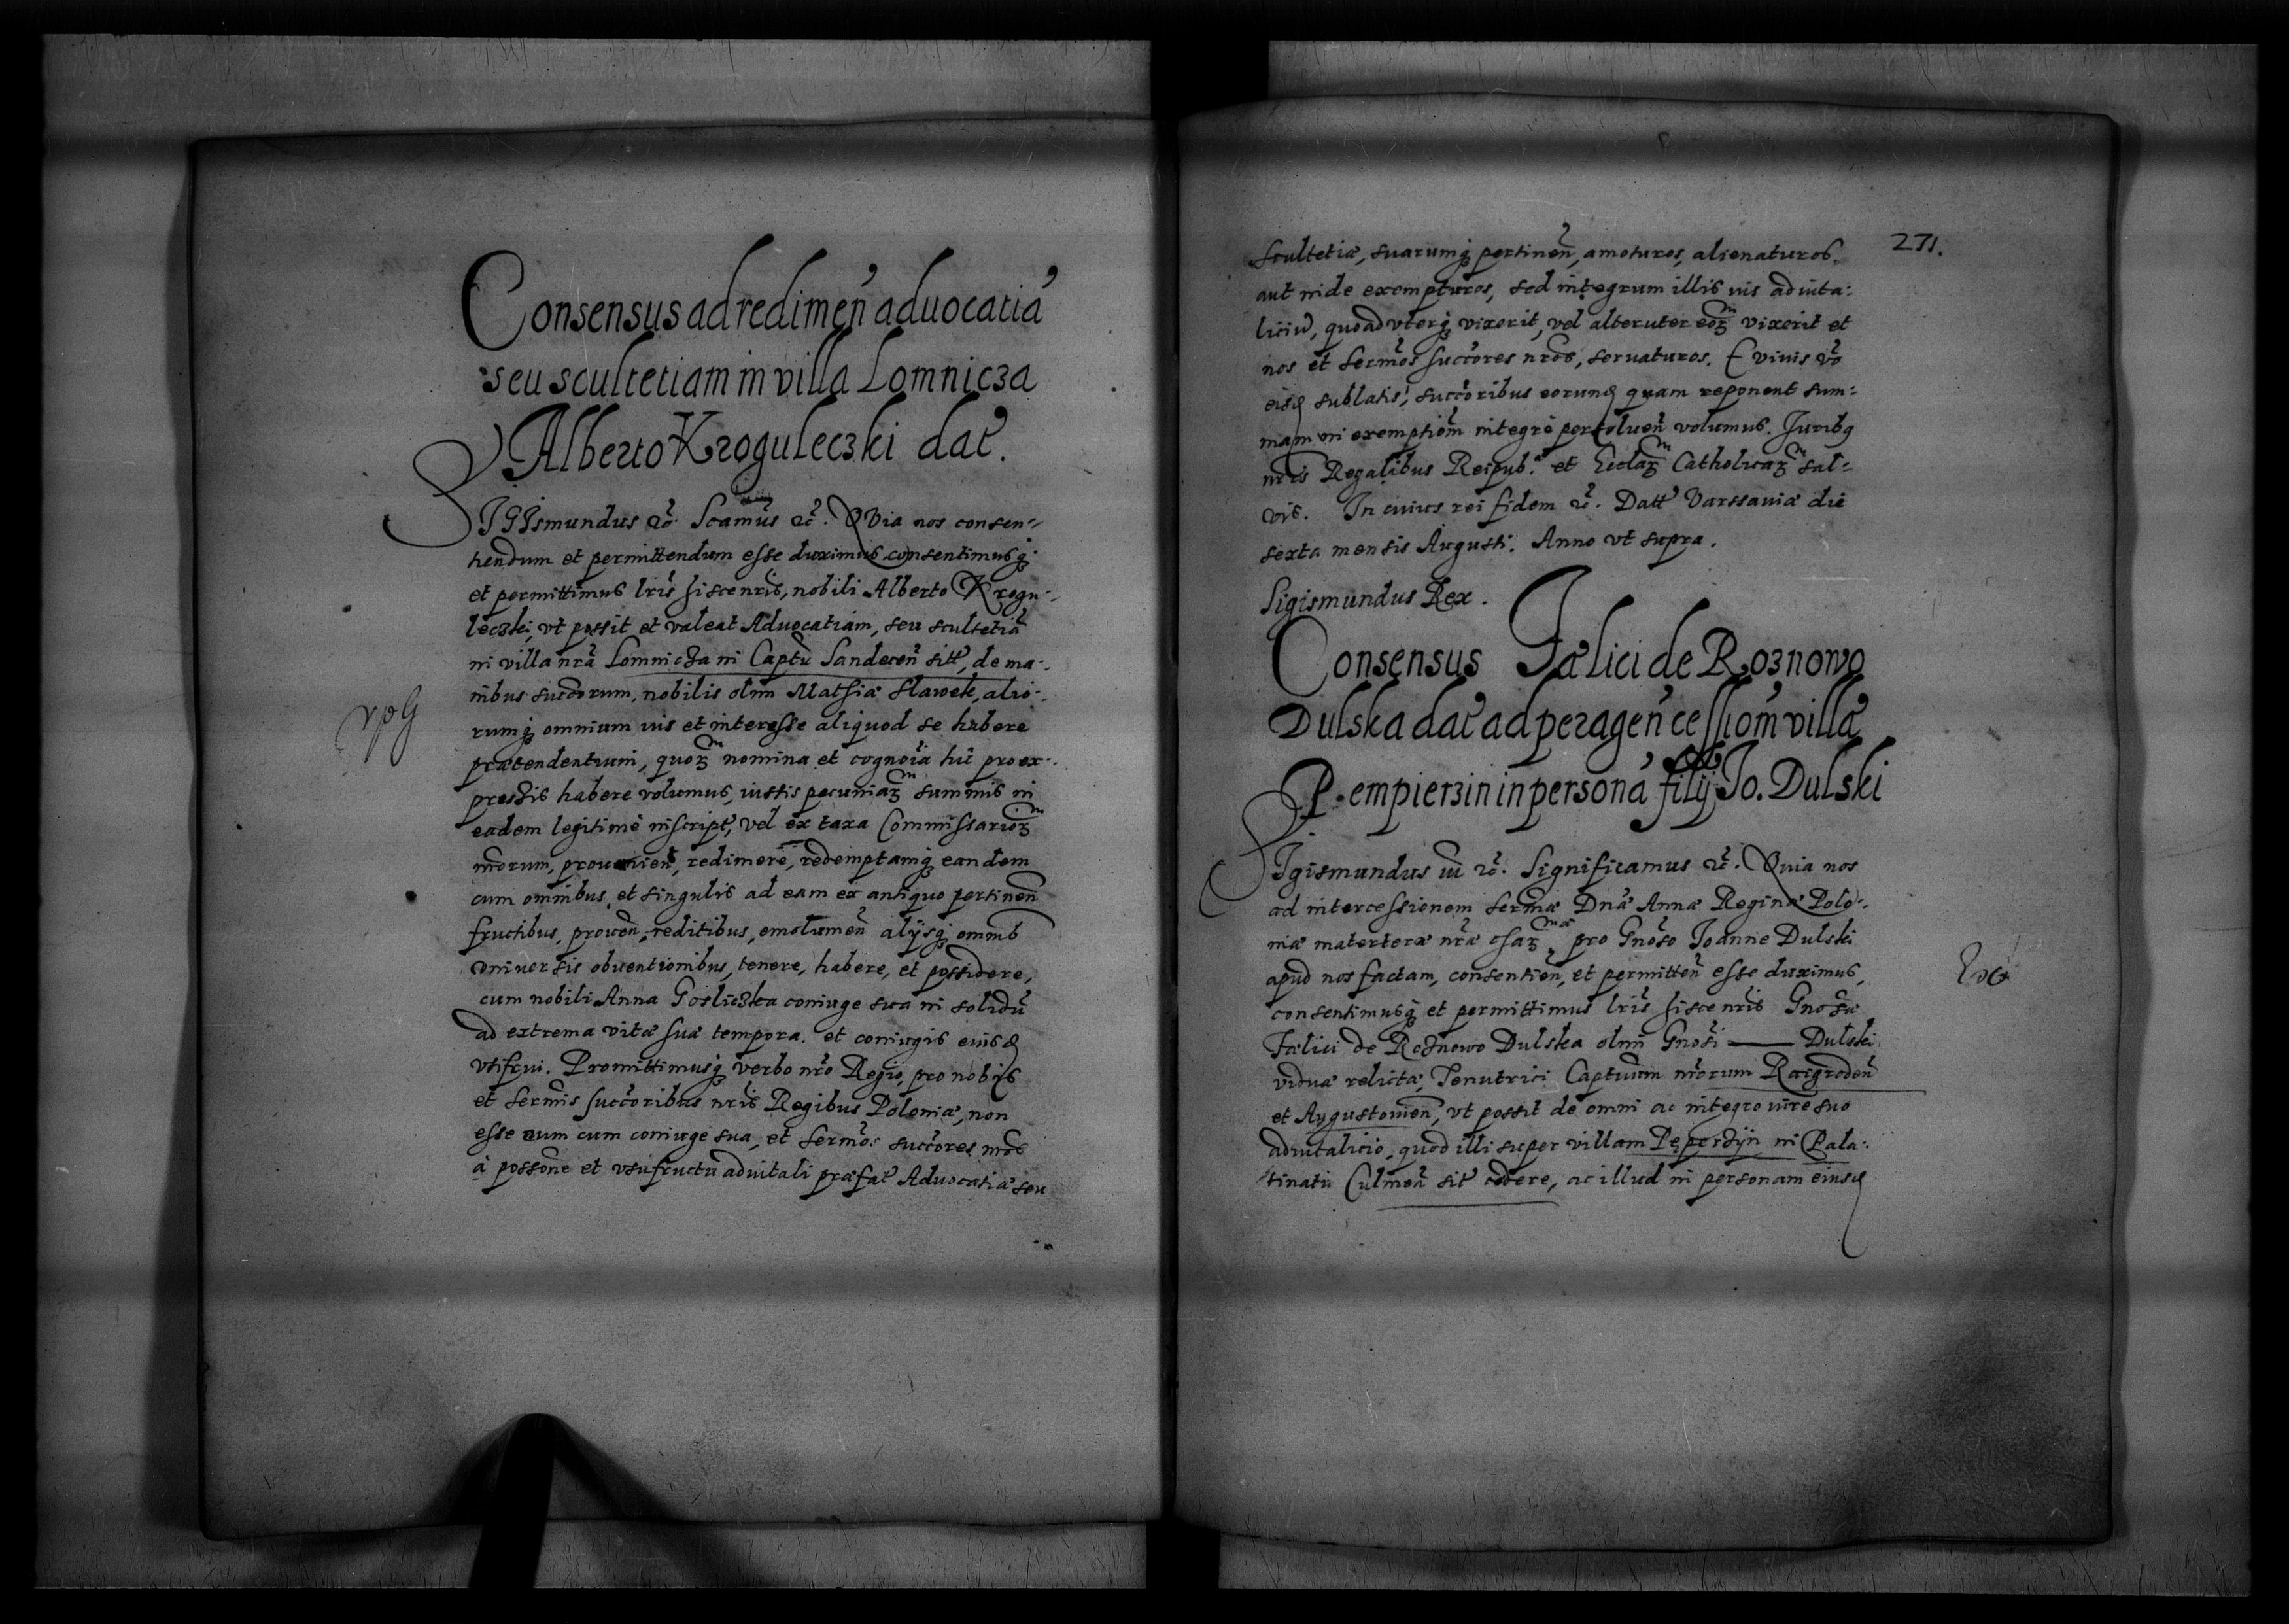 Consensus ad redimeñ aduocatiã
seu scultetiam in villa Lomnicza
Alberto Kroguleczki dat̃.
SIGIsmundus &c̃. Scamũs &c̃. QVia nos consen-
tiendum et permittendum esse duximus consentimusq;
et permittimus lris̃ hisce nris̃, nobili Alberto Krogu-
leczki, vt possit et valeat Aduocatiam, seu scultetiã
in villa nrã Lomnicza in Captũ Sandeceñ sitt̃, de ma-
nibus succorum, nobilis olim Mathiæ Slawek, alio-
rumq; omnium ius et interesse aliquod se habere
prætendentium, quoꝝ nomina et cognoĩa hic̃ pro ex-
pressis habere volumus, iustis pecuniaꝝ summis in
eadem legitimè inscript̃, vel ex taxa Commissarioꝝ
nrorum, prouenieñ, redimere, redemptamq; eandem
cum omnibus, et singulis ad eam ex antiquo pertineñ
fructibus, proueñ, reditibus, emolumeñ alijsq; omnib
vniuersis obuentionibus, tenere, habere, et possidere,
cum nobili Anna Gosliczka coniuge sua in solidũ
ad extrema vitæ suæ tempora. et coniugis eiusd
vtifrui. Promittimusq; verbo nrõ Regio, pro nobis
et Sermis̃ succoribus nris̃ Regibus Poloniæ, non
esse eum cum coniuge sua, et Sermos̃ succores nros̃
à possone et vsufructu aduitali præfat̃ Aduocatiæ seu
vpG
271.
scultetiæ, suarumq; pertineñ, amoturos, alienaturos,
aut inde exempturos, sed integrum illis ius aduita-
liciũ, quoad vterq; vixerit, vel alteruter eoꝝ vixerit et
nos et Sermos̃ succores nros̃, seruaturos. E viuis võ
eisd sublatis, succoribus eorund quam reponent sum-
mam in exemptiom̃ integrè persolueñ volumus. Juribq
nris̃ Regalibus Reipub. et Ecclaꝝ Catholicaꝝ sal-
vis. In cuius rei fidem &c̃. Datt̃ Varssauiæ die
sexta mensis Augusti. Anno vt supra.
Sigismundus Rex.
Consensus Fælici de Roznowo
Dulska dat̃ ad perageñ cessiom̃ villæ
Pempierzin in personã filij Jo. Dulski
SIgismundus iii &c̃. Significamus &c̃. Quia nos
ad intercessionem Sermæ Dnæ̃ Annæ Reginæ Polo-
niæ materteræ nræ̃ chaꝝ, pro Gnoso Joanne Dulski
apud nos factam, consentieñ, et permitteñ esse duximus,
consentimusq; et permittimus lris̃ hisce nris̃ Gnosæ
Fælici de Roznowo Dulska olim Gnosi —— Dulski
viduæ relictæ, Tenutrici Captuum nrorum Raigrodeñ
et Augustouieñ, vt possit de omni ac integro iure suo
aduitalicio, quod illi super villam Pęperzÿn in Pala-
tinatu Culmeñ sit̃ cedere, ac illud in personam eiusd